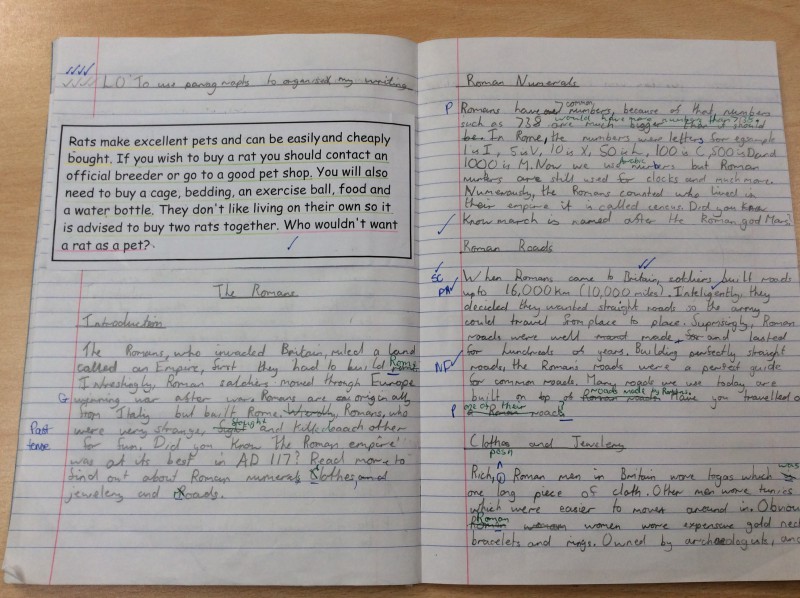 LO To use paragraphs to organise my writing
Rats make excellent pets and can be easily and cheaply
bought. If you wish to buy a rat you should contact an
official breeder or go to a good pet shop. You will also
need to buy a cage, bedding, an exercise ball, food and
a water bottle. They don't like living on their own so it
is advised to buy two rats together. Who wouldn't want
a rat as a pet?
The Romans
Introduction
The Romans, who invaded Britain, ruled a land
called an Empire, first they had to build Rome
Intrestingly, Roman moved through Europe
G winning war after war. Romans are originally
from Italy but built Rome. Romans, who
Past were very strange, fought and killed each other
tense for fun. Did you know the Roman empire
was at its best in AD 117? Read more to
find out about Roman numerals Clothes, and
jewelery and Roads.
Roman Numerals
P Romans have common numbers, because of that, numbers
such as 738 would have more numbers than 738.
are much bigger than should
be. In Rome, the numbers were letters for example
1 is I, 5 is V, 10 is X, 50 is L, 100 is C, 500 is D and
1000 is M. Now we use Arabic but Roman
are still used for clocks and much more.
Numerously, the Romans counted who lived in
their empire it is called census. Did you know
Know march is named after the Roman god Mars?
Roman Roads
SC When Romans came to Britain, built roads
upto 16,000 km (10,000 miles). Inteligently, they
decided they wanted straight roads so the army
could travel from place to place. Suprisingly, Roman
roads were well made and lasted
for hundreds of years. Building perfectly straight
NF roads, the Roman's roads were a perfect guide
for common roads. Many roads we use today are
built on top of roads made by Romans. Have you travelled o
P one of their roads
Clothes and Jewelery
posh
Rich, Roman men in Britain wore togas which was
one long piece of cloth. Other men wore tunics
which were easier to move around in. Obviou
Roman women wore expensive gold neck
bracelets and rings. Owned by archaeologists, and